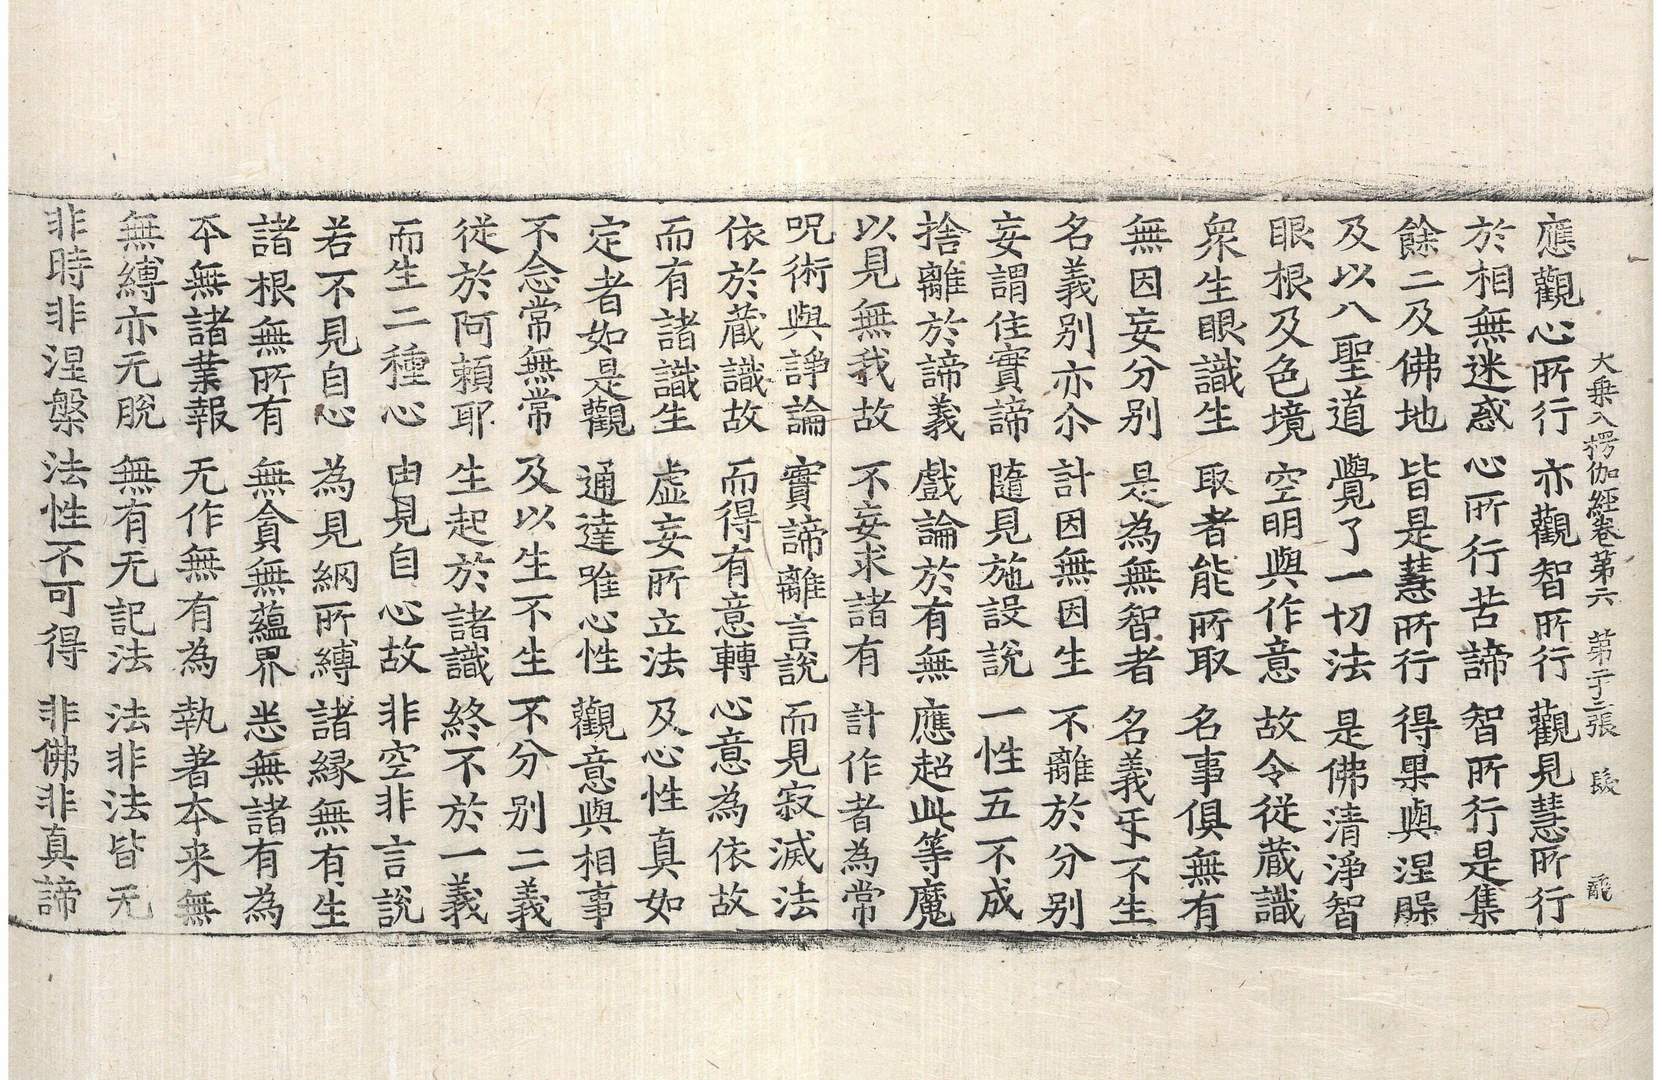 大乗入楞伽經卷第六 第二十三張 髮 龍
應觀心所行 亦觀智所行 觀見慧所行
於相無迷惑 心所行苦諦 智所行是集
餘二及佛地 皆是慧所行 得果與涅槃
及以八聖道 覺了一切法 是佛清淨智
眼根及色境 空明與作意 故令従蔵識
衆生眼識生 取者能所取 名事俱無有
無因妄分別 是為無智者 名義互不生
名義别亦尒 計因無因生 不離於分别
妄謂住實諦 隨見施設說 一性五不成
捨離於諦義 戲論於有無 應超此等魔
以見無我故 不妄求諸有 計作者為常
呪術與諍論 實諦離言說 而見寂滅法
依於蔵識故 而得有意轉 心意為依故
而有諸識生 虚妄所立法 及心性真如
定者如是觀 通達唯心性 觀意與相事
不念常無常 及以生不生 不分别二義
従於阿頼耶 生起於諸識 終不於一義
而生二種心 由見自心故 非空非言說
若不見自心 為見網所縛 諸縁無有生
諸根無所有 無貪無蘊界 悉無諸有為
本無諸業報 无作無有為 執著本来無
無縛亦无脫 無有无記法 法非法皆无
非時非涅槃 法性不可得 非佛非真諦